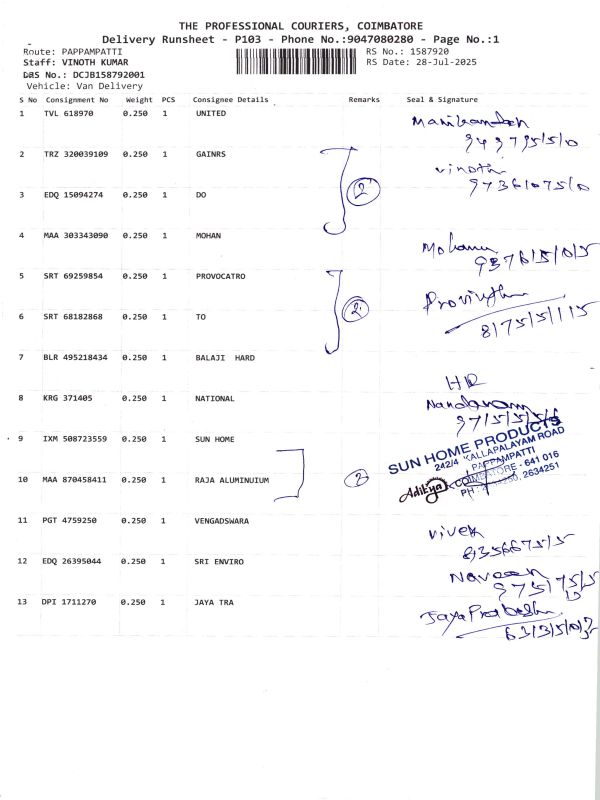 THE PROFESSIONAL COURIERS, COIMBATORE
Delivery Runsheet - P103 - Phone No.:9047080280 - Page No.:1
Route: PAPPAMPATTI RS No.: 1587920
Staff: VINOTH KUMAR RS Date: 28-Jul-2025
DRS No.: DCJB158792001
Vehicle: Van Delivery
S No Consignment No Weight PCS Consignee Details Remarks Seal & Signature
1 TVL 618970 0.250 1 UNITED Manikandan
2 TRZ 320039109 0.250 1 GAINRS
vinoth
3 EDQ 15094274 0.250 1 DO 2
4 MAA 303343090 0.250 1 MOHAN
5 SRT 69259854 0.250 1 PROVOCATRO
6 SRT 68182868 0.250 1 TO 2
7 BLR 495218434 0.250 1 BALAJI HARD
HR
8 KRG 371405 0.250 1 NATIONAL
9 IXM 508723559 0.250 1 SUN HOME
SUN HOME PRODUCTS
242/4 KALLAPALAYAM ROAD
PAPPAMPATTI
COIMBATORE - 641 016
10 MAA 870458411 0.250 1 RAJA ALUMINUIUM 2
Aditya
PH : 2634251
11 PGT 4759250 0.250 1 VENGADSWARA
vivek
12 EDQ 26395044 0.250 1 SRI ENVIRO
Naveen
13 DPI 1711270 0.250 1 JAYA TRA